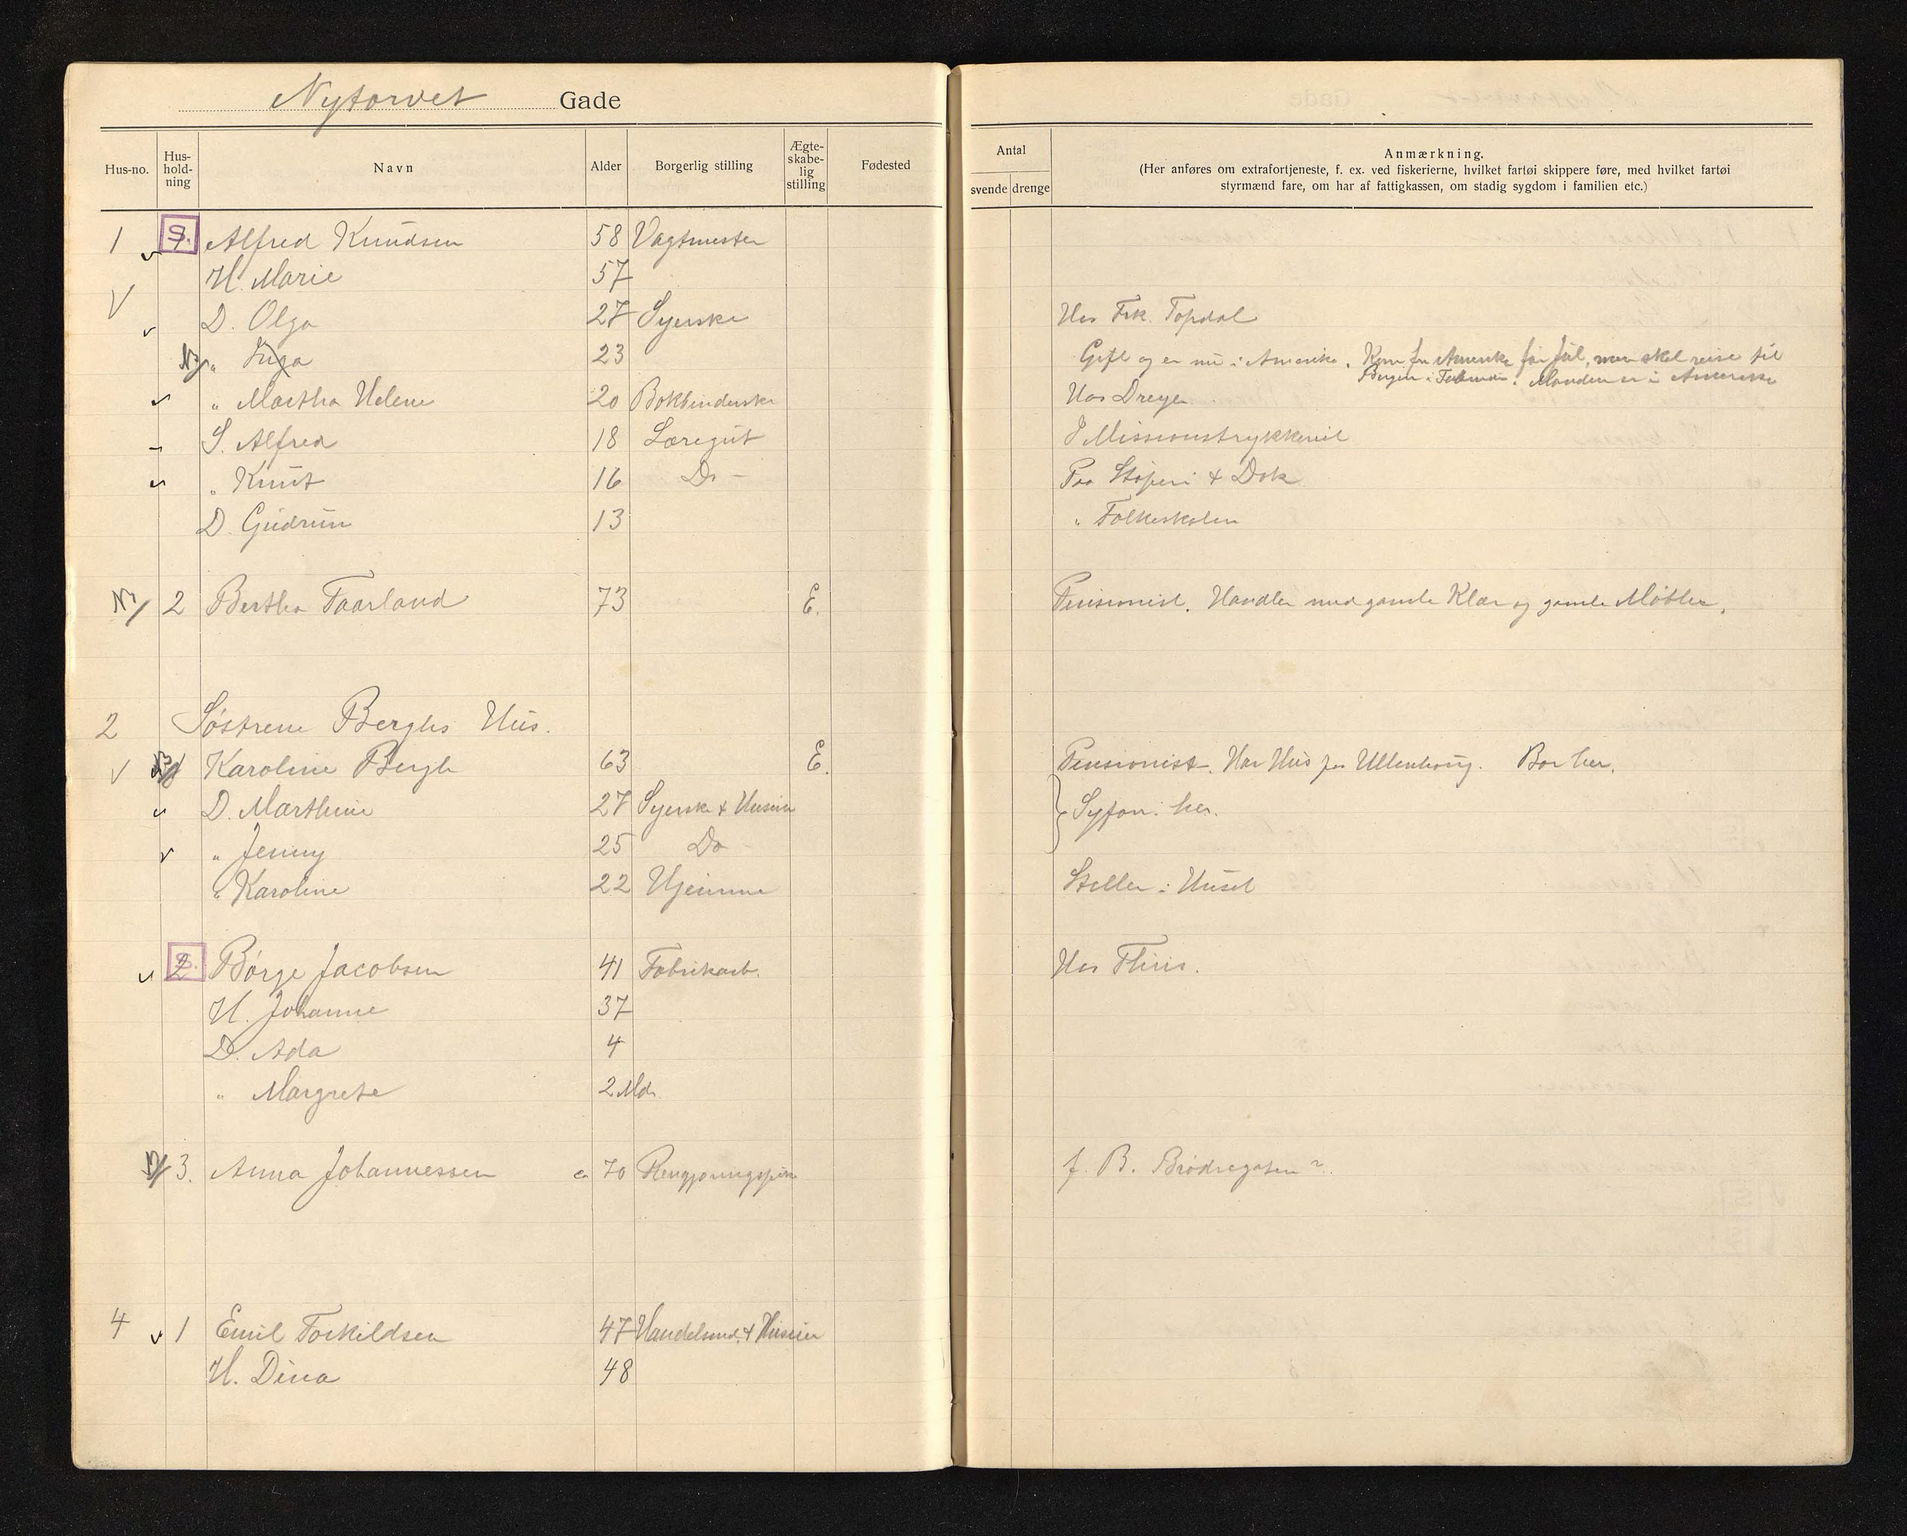 Nytorvet Gade
Hus-no. Hus-hold-ning Navn Alder Borgerlig stilling Ægte-skabe-lig stilling Fødested
Antal
svende drenge
Anmærkning.
(Her anføres om extrafortjeneste, f. ex. ved fiskerierne, hvilket fartøi skippere føre, med hvilket fartøi
styrmænd fare, om har af fattigkassen, om stadig sygdom i familien etc.)
1 S. Alfred Knudsen 58 Vagtmester
H. Marie 57
D. Olga 27 Syerske Hos Frk. Topdal
" Inga 23 Gift og er nu i Amerika. Kom fra Amerika før jul, men skal reise til
Bergen i Februar. Manden er i Amerika
" Martha Helene 20 Bokbinderske Hos Dreyer.
S. Alfred 18 Læregut I Missionstrykkeriet
" Knut 16 Do - Paa Støperi & Dok
D. Gudrun 13 " Folkeskolen
2 Bertha Taarland 73 E. Pensionist. Handler med gamle Klær og gamle Møbler.
2 Søstrene Berghs Hus.
Karoline Bergh 63 E. Pensionist. Har Hus paa Ullenhaug. Bor her.
D. Marthine 27 Syerske & Huseier Syforr. her.
" Jenny 25 Do
" Karoline 22 Hjemme Steller i Huset
2 Børge Jacobsen 41 Fabrikarb. Hos Thiis.
H. Johanne 37
D. Ada 4
" Margrete 2 Mdr.
3. Anna Johannessen ca 70 Rengjøringspike f. B. Brødregaten?
4 1 Emil Torkildsen 47 Handelsmd. & Huseier
H. Dina 48